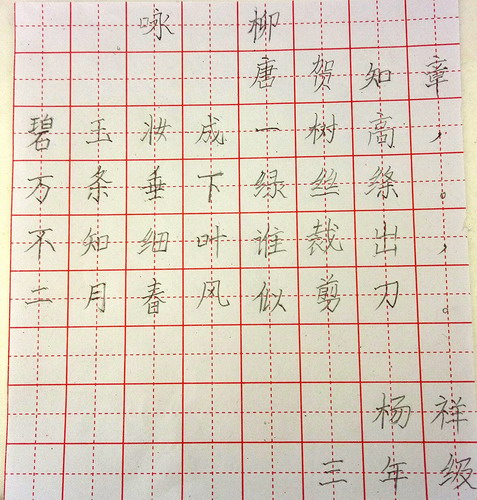 咏柳
唐贺知章
碧玉妆成一树高，
万条垂下绿丝绦。
不知细叶谁裁出，
二月春风似剪刀。
杨祥
三年级